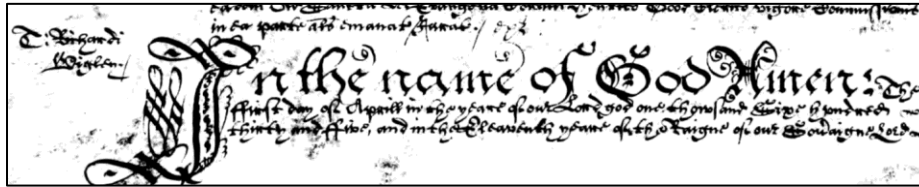 in ea parte als emanat Jurat. / Ex.
T: Richardi
Wiglen. /
In the name of God Amen: The
ffirst day of Aprill in the yeare of our Lord god one thowsand Sixe hundred
thirty and ffive, and in the Eleaventh yeare of the Raigne of our Sovaigne Lord